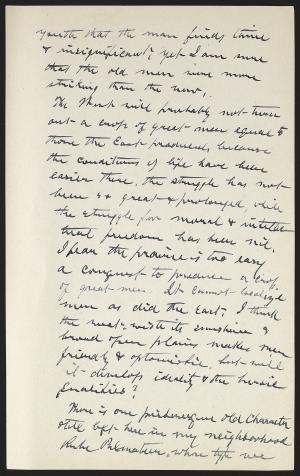 youth that the man finds tame
& insignificant, yet I am sure
that the old men were more
striking than the new.
The West will probably not turn
out a crop of great men equal to
those the East produced, because
the conditions of life have been
easier there, the struggle has not
been so great & prolonged, while
the struggle for moral & intellec
tual freedom has been nil.
I fear the prairie is too easy
a conquest to produce a crop
of great men. It cannot
men as did the East. I think
the west, with its sunshine &
broad open plains makes men
friendly & optimistic, but will
it develop ideality & the heroic
qualities?
There is one picturesque old Character
still left here in my neighborhood
Rube whose type we